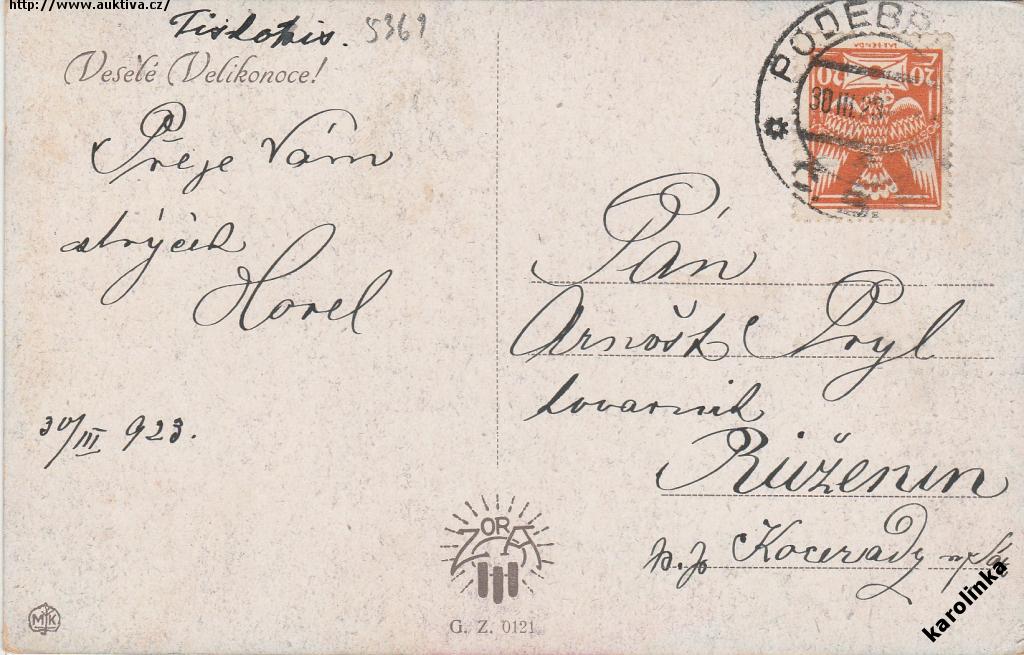 http://www.auktiva.cz/
Tiskopis. 5361
Veselé Velikonoce!
Přeje Vám
strýček
Horel
30/III 923.
PODĚBR
30.III.23
20 20
Pán
Arnošt Pryl
továrník
Růženin
p.p. Kocerady n/Sáz
ZORA
G. Z. 0121
MK
karolinka